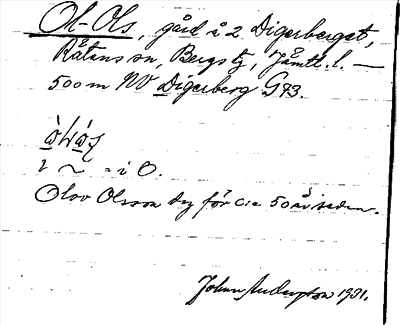 Ol-Ols, gård å 2 Digerberget,
Rätans sn, Bergs tg, Jämtl. l. —
500 m NV Digerberg G 93.
i ~ - i O.
Olov Olsson dog för c:a 50 år sedan.
John 1931.